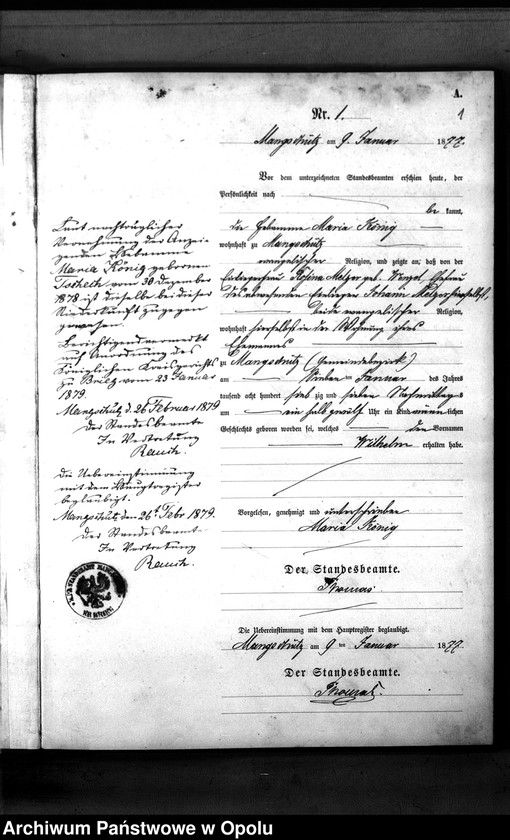 A.
1
Nr. 1.
Mangschütz am 9. Januar 1877.
Vor dem unterzeichneten Standesbeamten erschien heute, der
Persönlichkeit nach
be kannt,
die Hebamme Maria König
wohnhaft zu Mangschütz
evangelischer Religion, und zeigte an, daß von der
Einliegerfrau Rosina Melzer geb. Ehefrau
des Einlieger Johann Melzer hierselbst,
beide evangelischer Religion,
wohnhaft hierselbst in der Wohnung ihres
Ehemannes
zu Mangschütz (Gemeindebezirk)
am Sieben ten Januar des Jahres
tausend acht hundert sieb zig und sieben Nachmittags
um ein halb zwölf Uhr ein Kind männ lichen
Geschlechts geboren worden sei, welches den Vornamen
Wilhelm erhalten habe.
Vorgelesen, genehmigt und unterschrieben
Maria König
Der Standesbeamte.
Thomas
Die Uebereinstimmung mit dem Hauptregister beglaubigt.
Mangschütz am 9 ten Januar 1877.
Der Standesbeamte.
Thomas.
Laut nachträglicher
Vernehmung der Anzei
genden Hebamme
Maria König geborenen
vom 30 Dezember
1878 ist dieselbe bei dieser
Niederkunft zugegen
gewesen.
Berichtigend vermerkt
auf Anordnung des
Königlichen Kreisgerichts
zu Brieg vom 23 Januar
1879.
Mangschütz d. 26 Februar 1879
Der Standesbeamte
In Vertretung
Rausch.
Die Uebereinstimmung
mit dem Hauptregister
beglaubigt.
Mangschütz den 26t Febr 1879.
Der Standesbeamte
In Vertretung
Rausch.
Archiwum Państwowe w Opolu